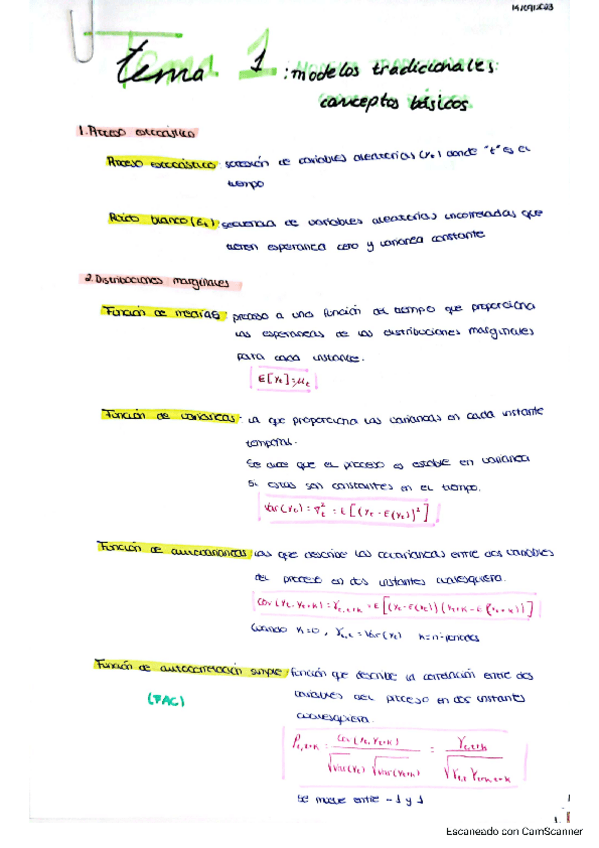 14/09/2023
tema 1: modelos tradicionales:
conceptos básicos.
1. Proceso estocástico
Proceso estocástico: sucesión de variables aleatorias (Yt) donde "t" es el
tiempo
Ruido blanco (Et): secuencia de variables aleatorias incorreladas que
tienen esperanza cero y varianza constante
2. Distribuciones marginales
Función de medias: proceso a una función del tiempo que proporciona
las esperanzas de las distribuciones marginales
para cada instante.
E[Yt]=μt
Función de varianzas: la que proporciona las varianzas en cada instante
temporal.
Se dice que el proceso es estable en varianza
si estas son constantes en el tiempo.
Var(Yt) = σt² = E[(Yt - E(Yt))²]
Función de autocovarianzas: las que describe las covarianzas entre dos variables
del proceso en dos instantes cualesquiera.
Cov(Yt, Yt+k) = γt,t+k = E[(Yt - E(Yt))(Yt+k - E(Yt+k))]
Cuando k=0, γt,t = Var(Yt) k=nº periodos
Función de autocorrelación simple: función que describe la correlación entre dos
(FAC) variables del proceso en dos instantes
cualesquiera.
ρt,t+k = Cov(Yt, Yt+k) / √Var(Yt) √Var(Yt+k) = γt,t+k / √γt,t γt+k,t+k
Se mueve entre -1 y 1
Escaneado con CamScanner